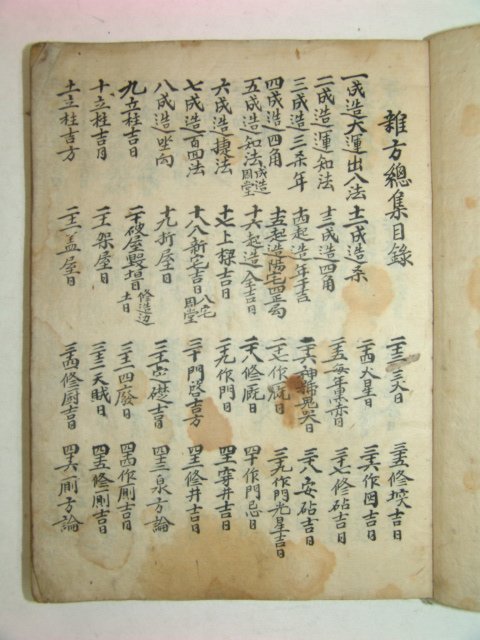 雜方總集目錄
一成造大運出入法
二成造運知法
三成造三杀年
四成造四角
五成造知法 成造周堂
六成造捷法
七成造百回法
八成造坐向
九立柱吉日
十立柱吉月
十一立柱吉方
十二成造杀
十三成造四角
十四起造年干吉
十五起造陽宅四正局
十六起造全吉日
十七上樑吉日
十八新宅吉日 八宅周堂
十九折屋日
二十破屋毀垣日 修造边土日
二十一架屋日
二十二盖屋日
二十三火日
二十四火星日
二十五每年黑赤日
二十六神號鬼哭日
二十七作廐日
二十八修廐日
二十九作門日
三十門啓吉方
三十一定礎吉日
三十二四廢日
三十三天賊日
三十四修厨吉日
三十五修埃吉日
三十六作囤吉日
三十七修砧吉日
三十八安砧吉日
三十九作門光星吉日
四十作門忌日
四十一穿井吉日
四十二修井吉日
四十三泉方論
四十四作厠吉日
四十五修厠吉日
四十六厠方論